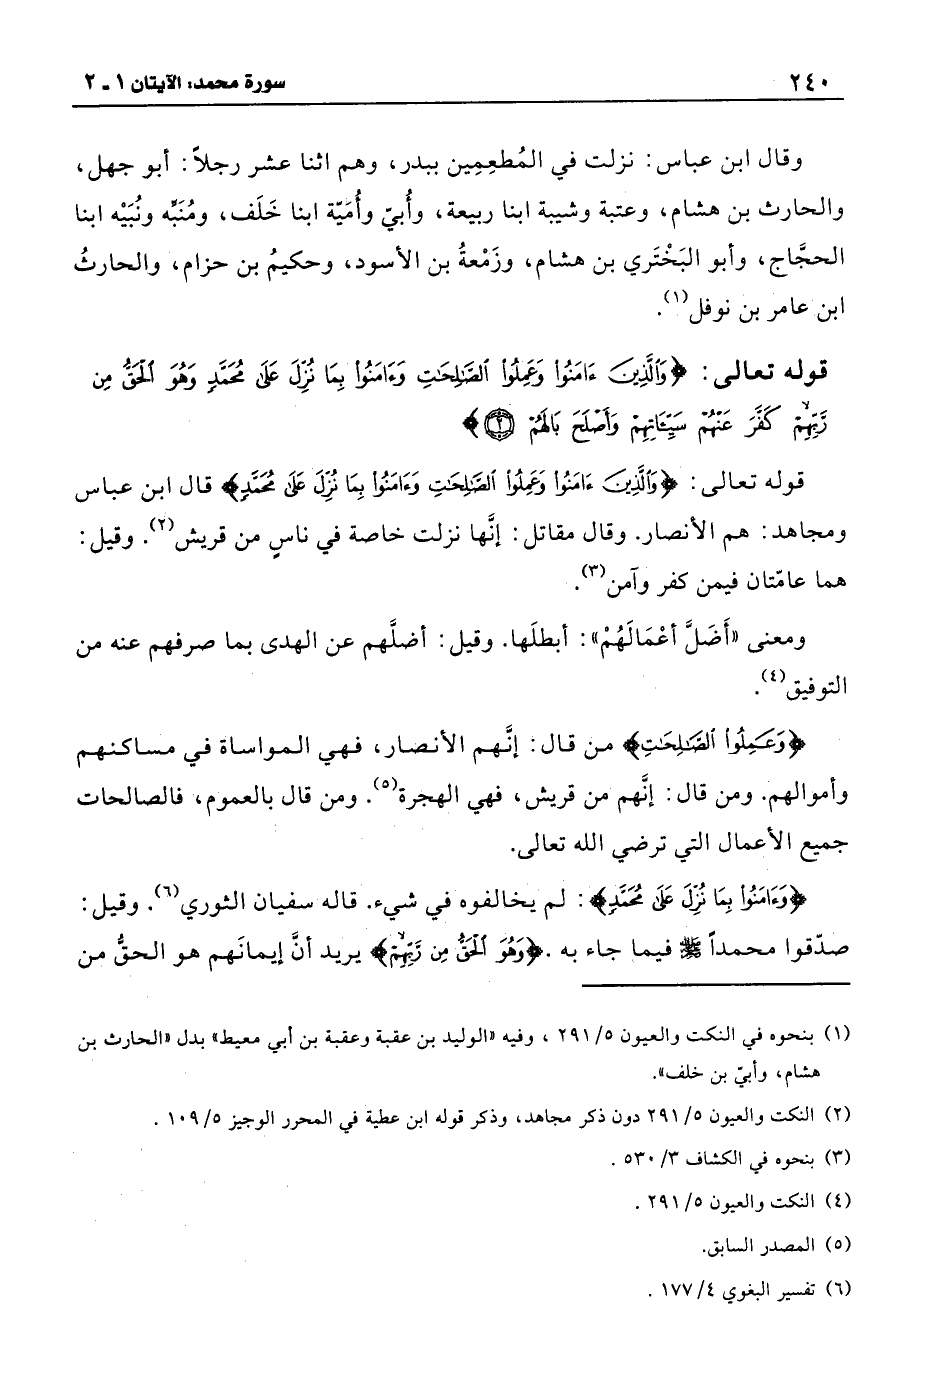 ٢٤٠
سورة محمد: الآيتان ١ - ٢
وقال ابن عباس: نزلت في المُطعِمِين ببدر، وهم اثنا عشر رجلاً: أبو جهل،
والحارث بن هشام، وعتبة وشيبة ابنا ربيعة، وأُبيّ وأُميّة ابنا خَلَف، ومُنَبِّه ونُبَيْه ابنا
الحجَّاج، وأبو البَخْتَري بن هشام، وزَمْعةُ بن الأسود، وحكيمُ بن حزام، والحارثُ
ابن عامر بن نوفل(١).
قوله تعالى: ﴿وَالَّذِينَ ءَامَنُوا۟ وَعَمِلُوا۟ ٱلصَّـٰلِحَـٰتِ وَءَامَنُوا۟ بِمَا نُزِّلَ عَلَىٰ مُحَمَّدٍ وَهُوَ ٱلْحَقُّ مِن
رَّبِّهِمْ ۙ كَفَّرَ عَنْهُمْ سَيِّـَٔاتِهِمْ وَأَصْلَحَ بَالَهُمْ ٢﴾
قوله تعالى: ﴿وَالَّذِينَ ءَامَنُوا۟ وَعَمِلُوا۟ ٱلصَّـٰلِحَـٰتِ وَءَامَنُوا۟ بِمَا نُزِّلَ عَلَىٰ مُحَمَّدٍ﴾ قال ابن عباس
ومجاهد: هم الأنصار. وقال مقاتل: إنَّها نزلت خاصة في ناسٍ من قريش(٢). وقيل:
هما عامّتان فيمن كفر وآمن(٣).
ومعنى «أَضَلَّ أَعْمَالَهُمْ»: أبطلَها. وقيل: أضلَّهم عن الهدى بما صرفهم عنه من
التوفيق(٤).
﴿وَعَمِلُوا۟ ٱلصَّـٰلِحَـٰتِ﴾ من قال: إنَّهم الأنصار، فهي المواساة في مساكنهم
وأموالهم. ومن قال: إنَّهم من قريش، فهي الهجرة(٥). ومن قال بالعموم، فالصالحات
جميع الأعمال التي ترضي الله تعالى.
﴿وَءَامَنُوا۟ بِمَا نُزِّلَ عَلَىٰ مُحَمَّدٍ﴾: لم يخالفوه في شيء. قاله سفيان الثوري(٦). وقيل:
صدّقوا محمداً ﷺ فيما جاء به .﴿وَهُوَ ٱلْحَقُّ مِن رَّبِّهِمْ ۙ﴾ يريد أنَّ إيمانَهم هو الحقُّ من
(١) بنحوه في النكت والعيون ٥/ ٢٩١ ، وفيه «الوليد بن عقبة وعقبة بن أبي معيط» بدل «الحارث بن
هشام، وأبيّ بن خلف».
(٢) النكت والعيون ٥/ ٢٩١ دون ذكر مجاهد، وذكر قوله ابن عطية في المحرر الوجيز ٥/ ١٠٩ .
(٣) بنحوه في الكشاف ٣/ ٥٣٠ .
(٤) النكت والعيون ٥/ ٢٩١ .
(٥) المصدر السابق.
(٦) تفسير البغوي ٤/ ١٧٧ .